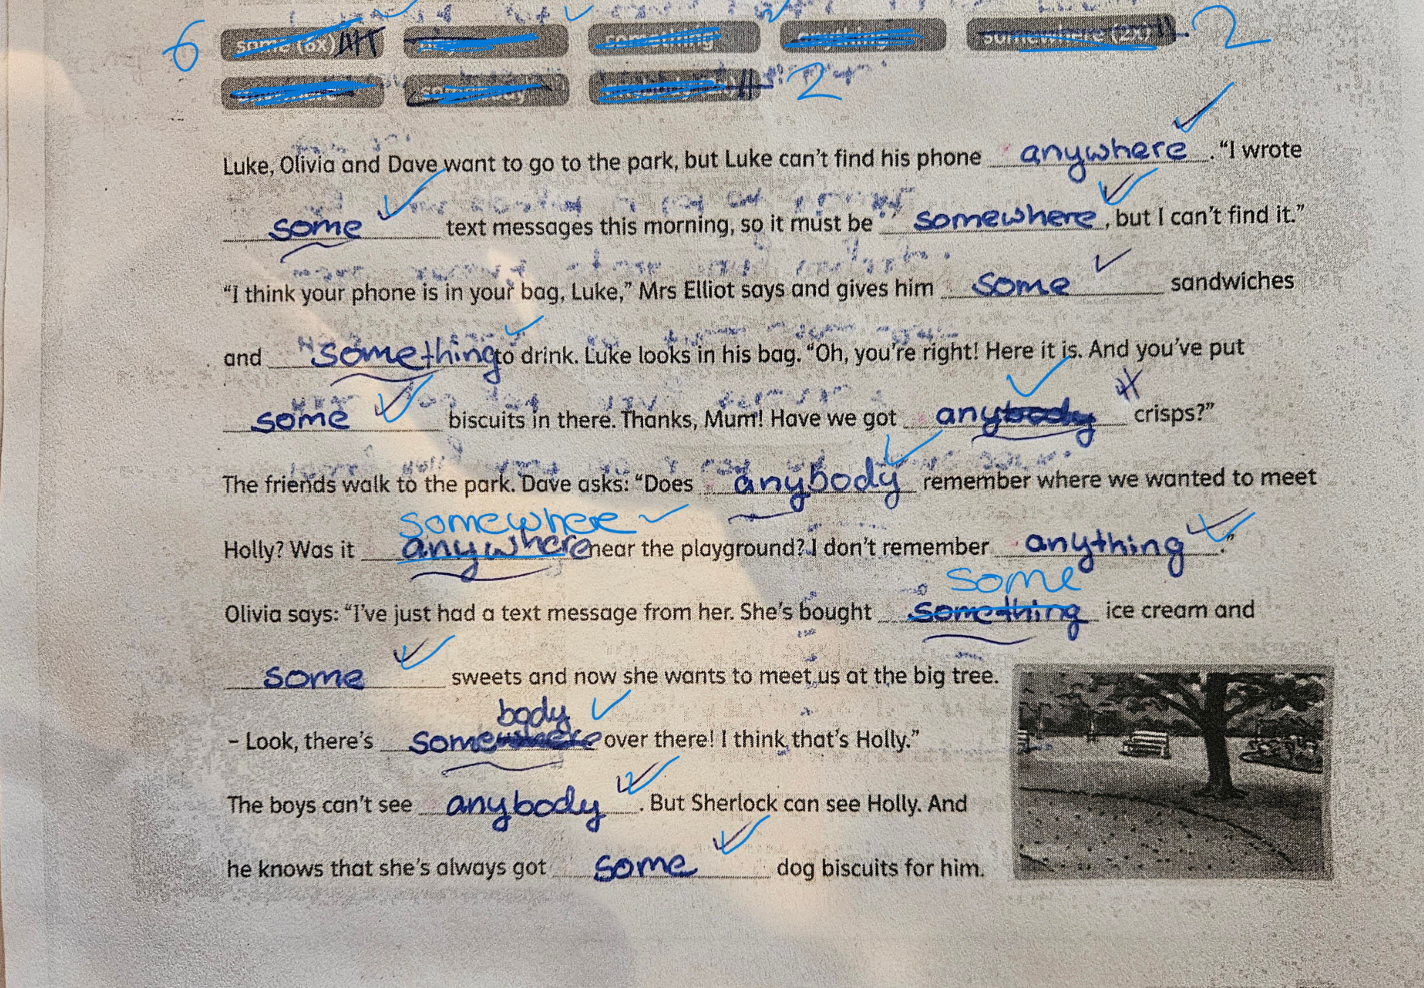 6 some (6x) something anything somewhere (2x) 2
somebody 2
Luke, Olivia and Dave want to go to the park, but Luke can't find his phone anywhere. "I wrote
some text messages this morning, so it must be somewhere, but I can't find it."
"I think your phone is in your bag, Luke," Mrs Elliot says and gives him some sandwiches
and something to drink. Luke looks in his bag. "Oh, you're right! Here it is. And you've put
some biscuits in there. Thanks, Mum! Have we got anybody crisps?"
The friends walk to the park. Dave asks: "Does anybody remember where we wanted to meet
somewhere
Holly? Was it anywhere near the playground? I don't remember anything."
some
Olivia says: "I've just had a text message from her. She's bought something ice cream and
some sweets and now she wants to meet us at the big tree.
body
– Look, there's somewhere over there! I think that's Holly."
The boys can't see anybody. But Sherlock can see Holly. And
he knows that she's always got some dog biscuits for him.